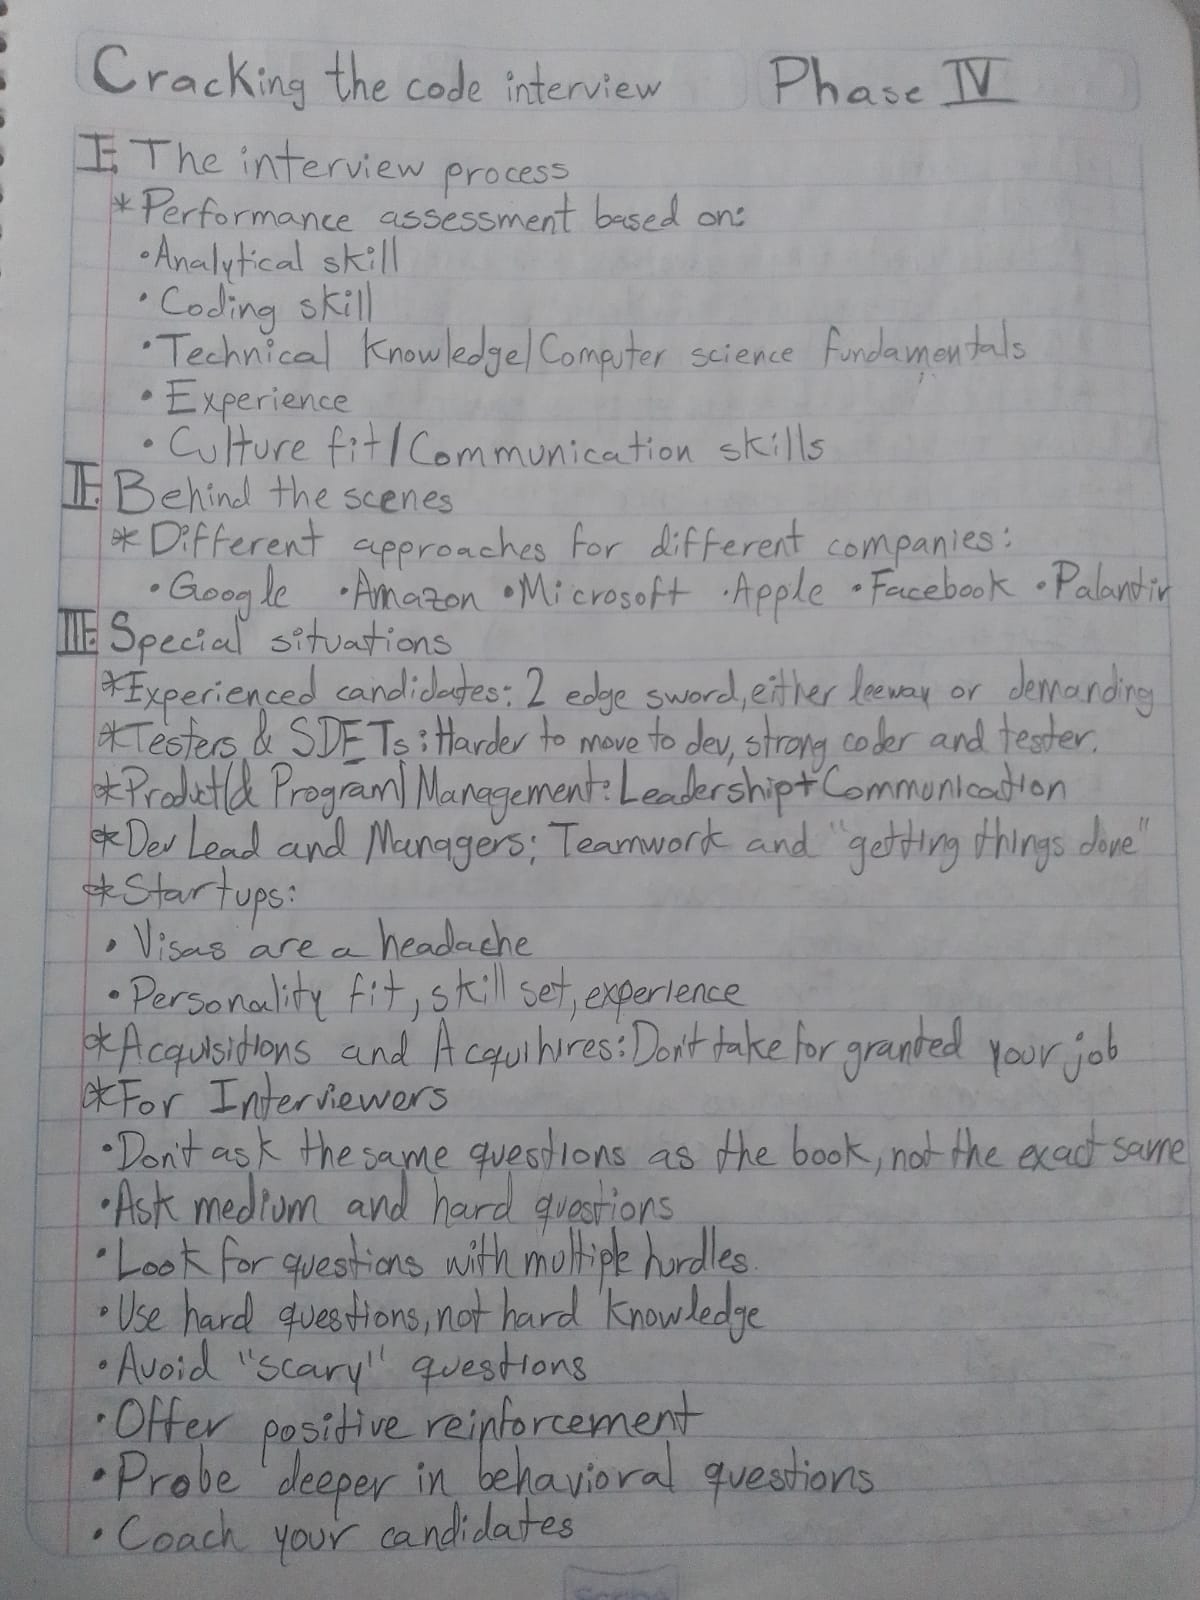 Cracking the code interview Phase IV
I. The interview process
* Performance assessment based on:
• Analytical skill
• Coding skill
• Technical Knowledge/Computer science fundamentals
• Experience
• Culture fit/Communication skills
II. Behind the scenes
* Different approaches for different companies:
• Google • Amazon • Microsoft • Apple • Facebook • Palantir
III. Special situations
* Experienced candidates: 2 edge sword, either leeway or demanding
* Testers & SDETs: Harder to move to dev, strong coder and tester.
* Product(& Program) Management: Leadership+Communication
* Dev Lead and Managers: Teamwork and "getting things done"
* Startups:
• Visas are a headache
• Personality fit, skill set, experience
* Acquisitions and Acquihires: Don't take for granted your job
* For Interviewers
• Don't ask the same questions as the book, not the exact same
• Ask medium and hard questions
• Look for questions with multiple hurdles.
• Use hard questions, not hard knowledge
• Avoid "scary" questions
• Offer positive reinforcement
• Probe deeper in behavioral questions
• Coach your candidates
Scribe